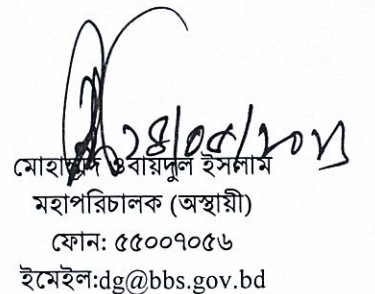 মোহাম্মদ ওবায়দুল ইসলাম
মহাপরিচালক (অস্থায়ী)
ফোন: ৫৫০০৭০৫৬
ইমেইল:dg@bbs.gov.bd